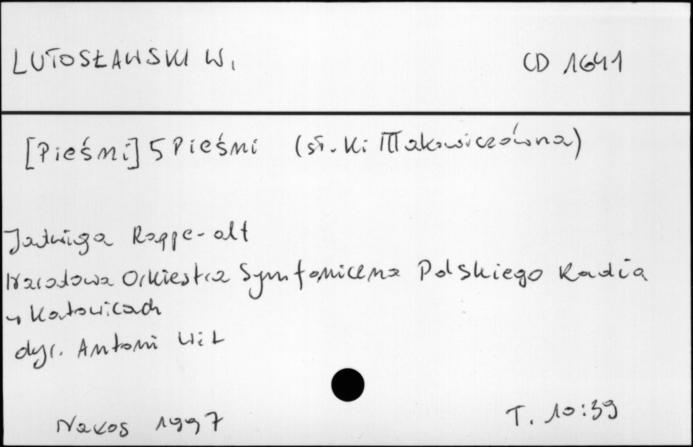 LUTOSŁAWSKI W. CD 1641
[Pieśni] 5 Pieśni (sł. K. Iłłakowiczówna)
Jadwiga Rappe-alt
Narodowa Orkiestra Symfoniczna Polskiego Radia
w Katowicach
dyr. Antoni Wit
Naxos 1997 T. 10:39